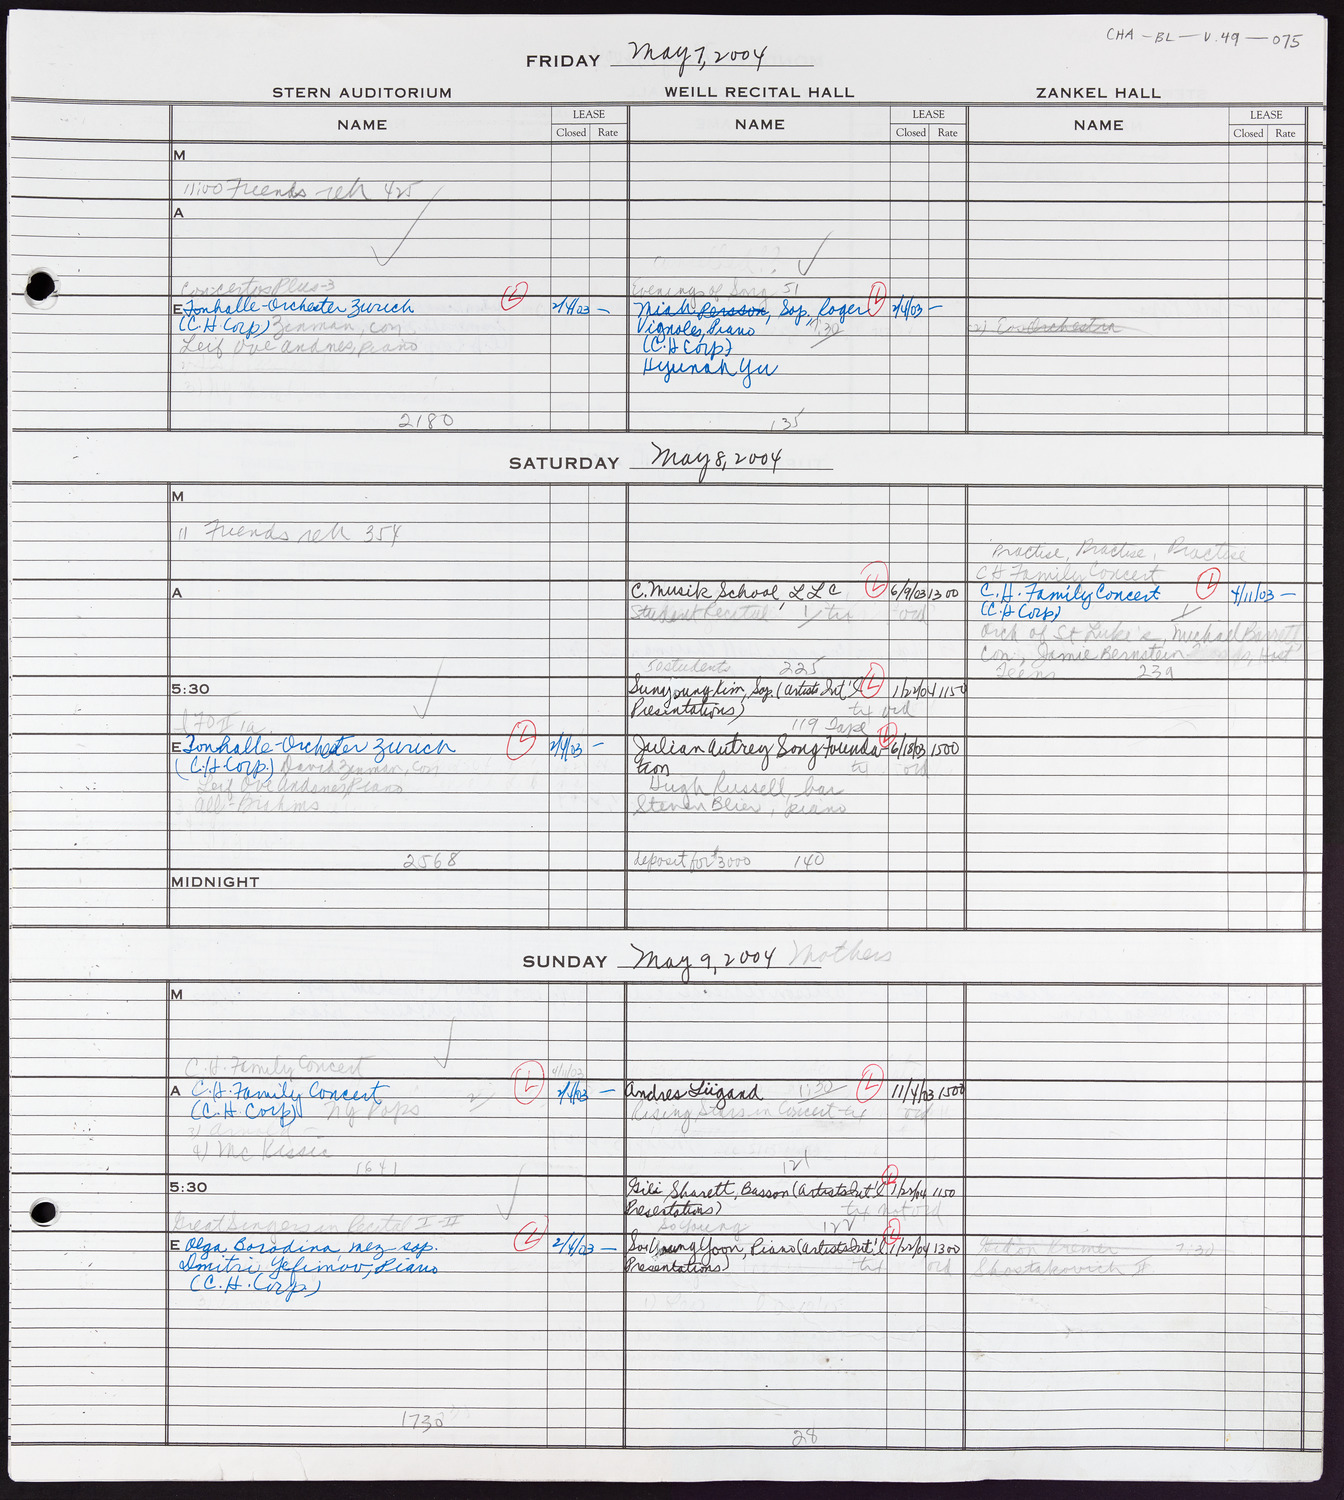 CHA-BL-V.49-075
FRIDAY May 7, 2004
STERN AUDITORIUM WEILL RECITAL HALL ZANKEL HALL
NAME LEASE NAME LEASE NAME LEASE
Closed Rate Closed Rate Closed Rate
M
11:00 Friends reh 425
A
Concertos Plus-3
E Tonhalle-Orchester Zurich 2/4/03 —
(C.H. Corp) Zinman, con
Leif Ove Andnes, piano
2180
Evenings of Song 51
Miah Persson, Sop. Roger 2/4/03 —
Vignoles, Piano 7:30
(C.H Corp)
Hyunah Yu
135
Orchestra
SATURDAY May 8, 2004
M
11 Friends reh 354
A
5:30
170 II 1a
E Tonhalle-Orchester Zurich 2/4/03 —
(C.H. Corp.) David Zinman, con
Leif Ove Andsnes, Piano
All-Brahms
2568
MIDNIGHT
C. Musik School, LLC 6/9/03 1300
Student Recital 1/ tix ord
50 students 225
Sunyoung Kim, Sop. (Artists Int'l 1/22/04 1150
Presentations) tix ord
119 Tape
Julian Autrey Song Founda- 6/18/03 1500
tion tix ord
Hugh Russell, bar
Steven Blier, piano
deposit for $3000 140
Practise, Practise, Practise
CH Family Concert
C.H. Family Concert 4/11/03 —
(C.H Corp)
Orch of St Luke's, Michael Barrett
Con, Jamie Bernstein Host
Teens 239
SUNDAY May 9, 2004 Mothers
M
C.H. Family Concert 4/11/03
A C.H. Family Concert 2/4/03 —
(C.H. Corp) NY Pops 2/
3) Arnold —
4) McKissic
1641
5:30
Great Singers in Recital I-III
E Olga Borodina mez sop. 2/4/03 —
Dmitri Yefimov, Piano
(C.H. Corp)
1730
Andres Liigand 1:30 11/4/03 1500
Rising Stars in Concert tix ord
121
Gili Sharett, Basson (Artists Int'l 1/22/04 1150
Presentations) tix not ord
So Young 122
Soo Young Yoon, Piano (Artists Int'l 1/22/04 1300
Presentations) tix ord
28
Gidon Kremer 7:30
Shostakovich II